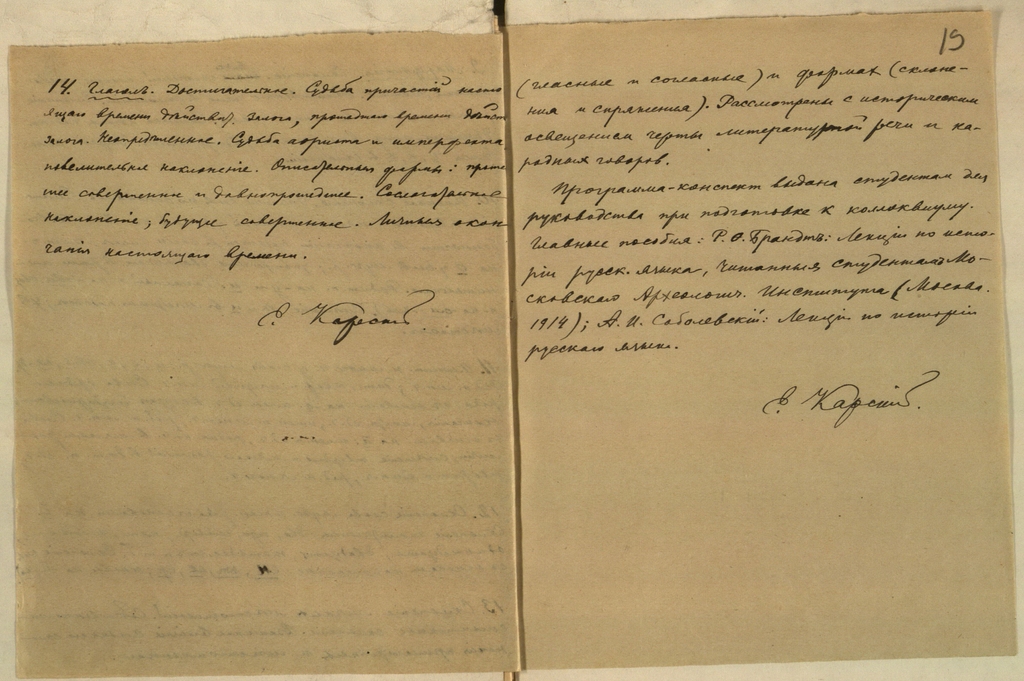 14. Глаголъ. Достигательное. Судьба причастій насто-
ящаго времени действ. залога, прошедшаго времени действ.
залога. Неопределенное. Судьба аориста и имперфекта
повелительное наклоненіе. Описательныя формы: прошед-
шее совершенное и давнопрошедшее. Сослагательное
наклоненіе; будущее совершенное. Личныя окон-
чанія настоящаго времени.
Е. Карскій
19
(гласные и согласные) и формах (склоне-
ния и спряжения). Рассмотрены с историческим
освещением черты литературной речи и на-
родных говоров.
Программа-конспект выдана студентам для
руководства при подготовке к коллоквиуму.
Главные пособия: Р. Ѳ. Брандтъ: Лекціи по исто-
ріи русск. языка, читанныя студентамъ Мо-
сковскаго Археологич. Института (Москва.
1914); А. И. Соболевскій: Лекціи по исторіи
русскаго языка.
Е. Карскій.